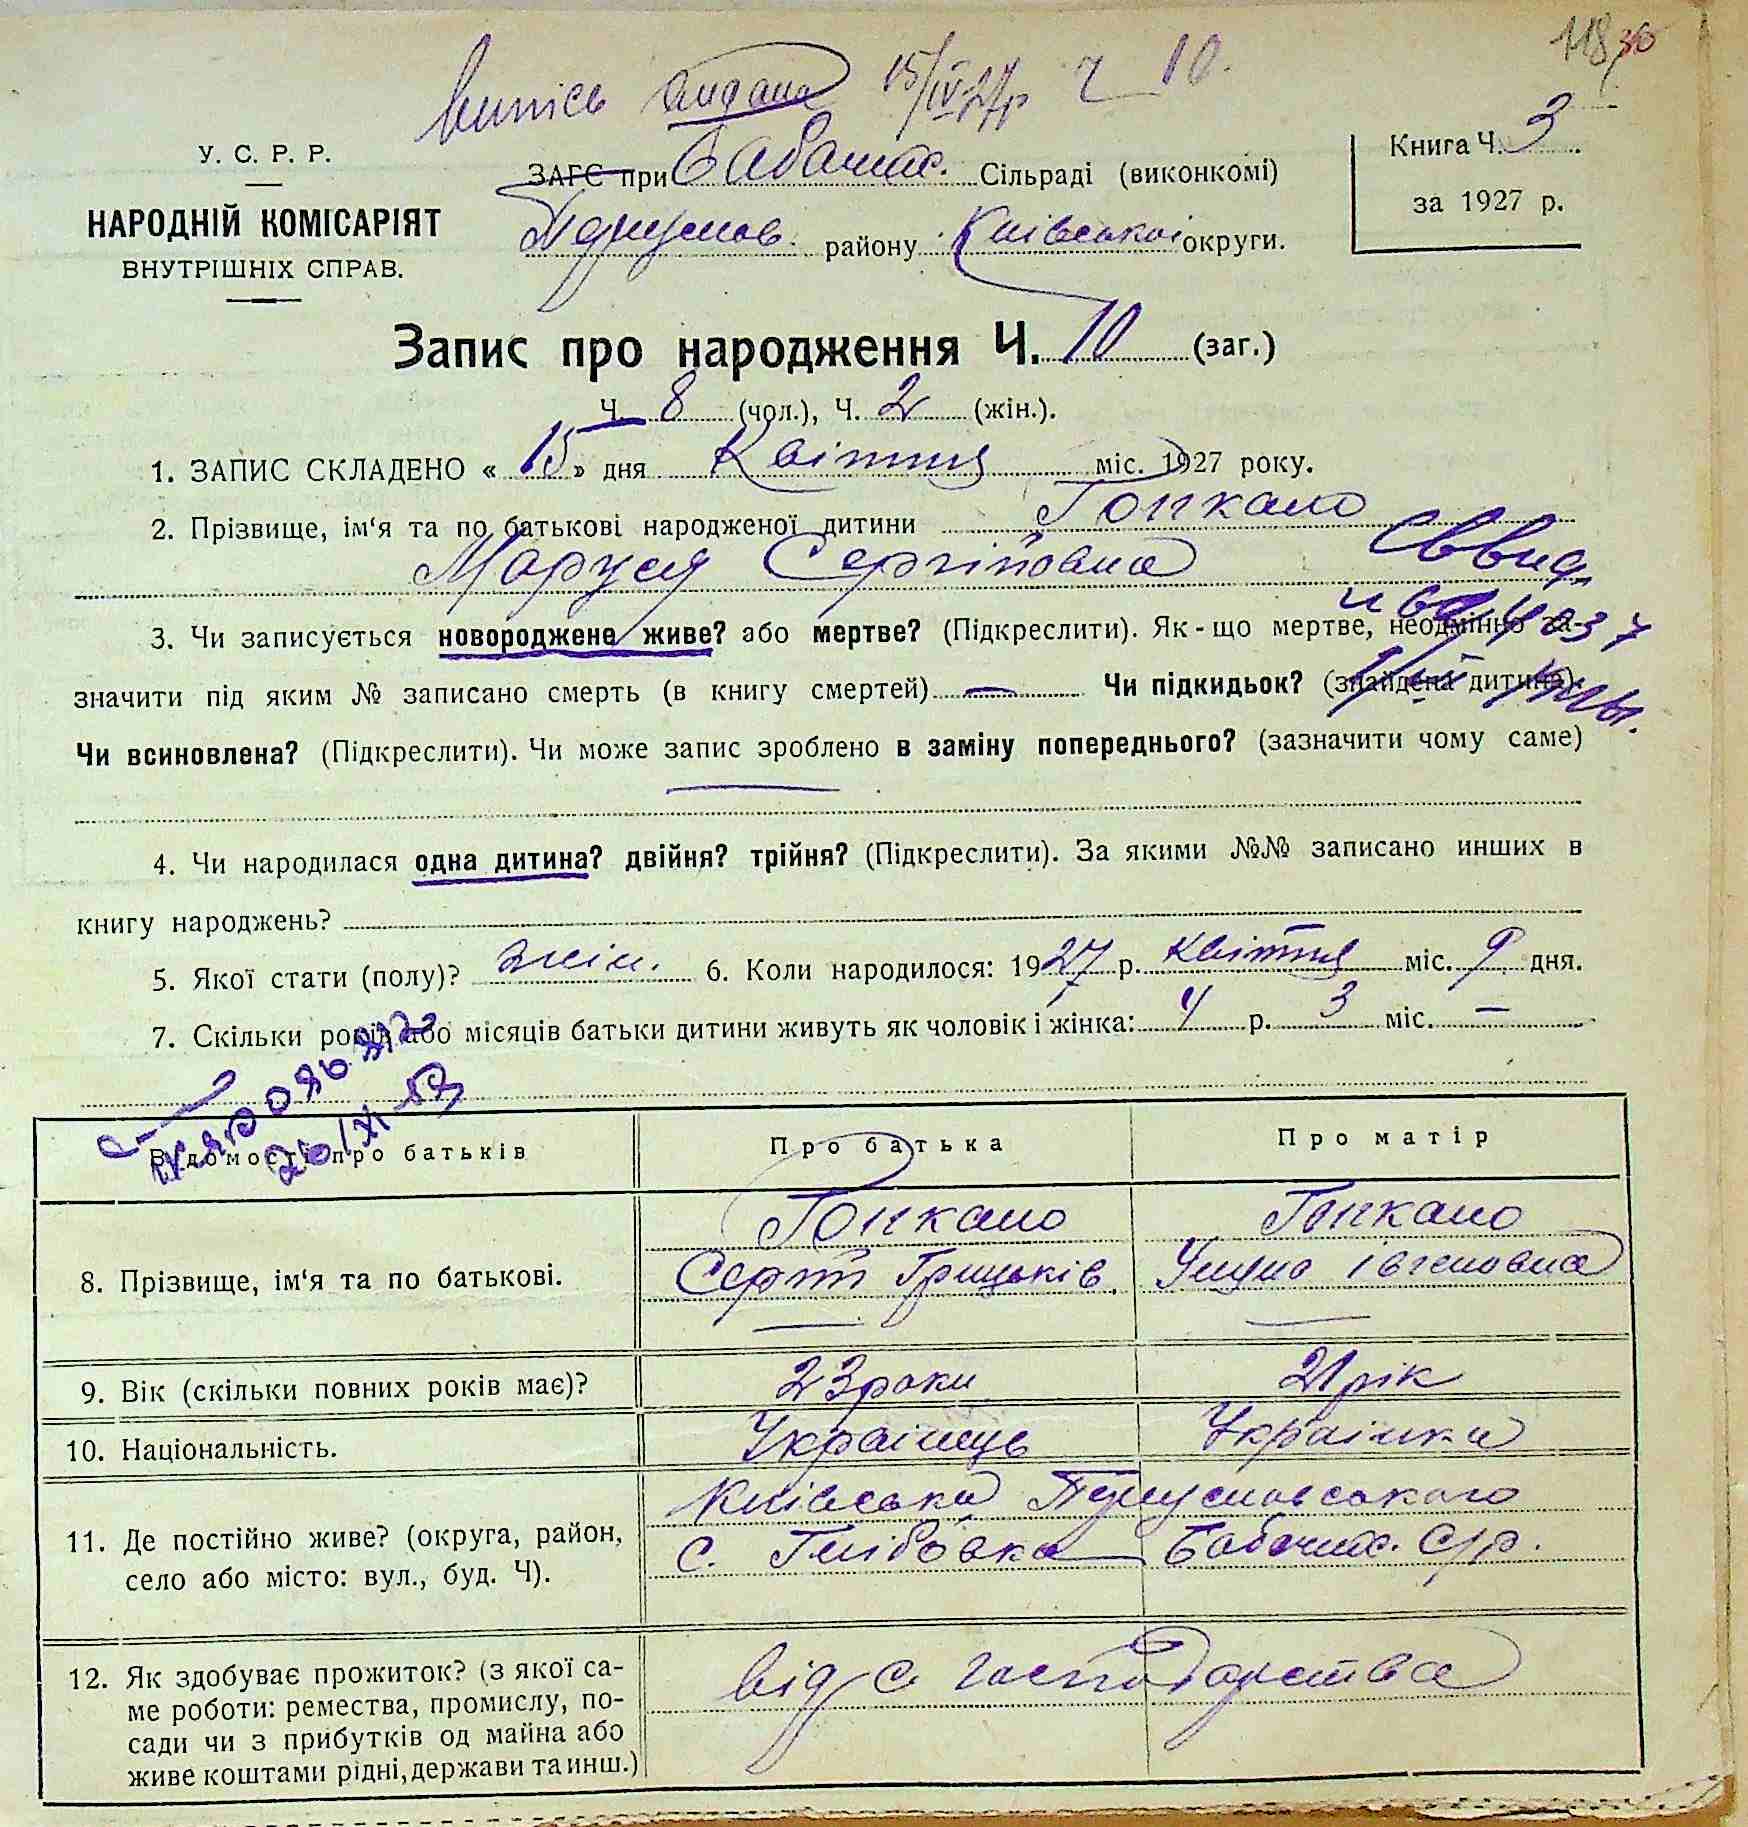 118 36
Випись видана 15/IV 27р Ч 10.
У. С. Р. Р.
НАРОДНІЙ КОМІСАРІЯТ
ВНУТРІШНІХ СПРАВ.
ЗАГС при Бабачис. Сільраді (виконкомі)
району Київської округи.
Книга Ч. 3.
за 1927 р.
Запис про народження Ч. 10 (заг.)
Ч. 8 (чол.), Ч. 2 (жін.).
1. ЗАПИС СКЛАДЕНО « 15 » дня Квітня міс. 1927 року.
2. Прізвище, ім'я та по батькові народженої дитини Гопкало
Маруся Сергіївна
3. Чи записується новороджене живе? або мертве? (Підкреслити). Як-що мертве, неодмінно за-
значити під яким № записано смерть (в книгу смертей) — Чи підкидьок? (знайдена дитина)
Чи всиновлена? (Підкреслити). Чи може запис зроблено в заміну попереднього? (зазначити чому саме)
4. Чи народилася одна дитина? двійня? трійня? (Підкреслити). За якими №№ записано инших в
книгу народжень?
5. Якої стати (полу)? жін. 6. Коли народилося: 1927 р. квітня міс. 9 дня.
7. Скільки років або місяців батьки дитини живуть як чоловік і жінка: 4 р. 3 міс. —
Відомості про батьків
Про батька
Про матір
8. Прізвище, ім'я та по батькові.
Гопкало
Сергій Грицьків.
Гопкало
Івгеновна
9. Вік (скільки повних років має)?
23 роки
21 рік
10. Національність.
Українець
Українка
11. Де постійно живе? (округа, район,
село або місто: вул., буд. Ч).
Київська
с. Глібовка Бабачис. с/р.
12. Як здобуває прожиток? (з якої са-
ме роботи: ремества, промислу, по-
сади чи з прибутків од майна або
живе коштами рідні, держави та инш.)
від с. господарства